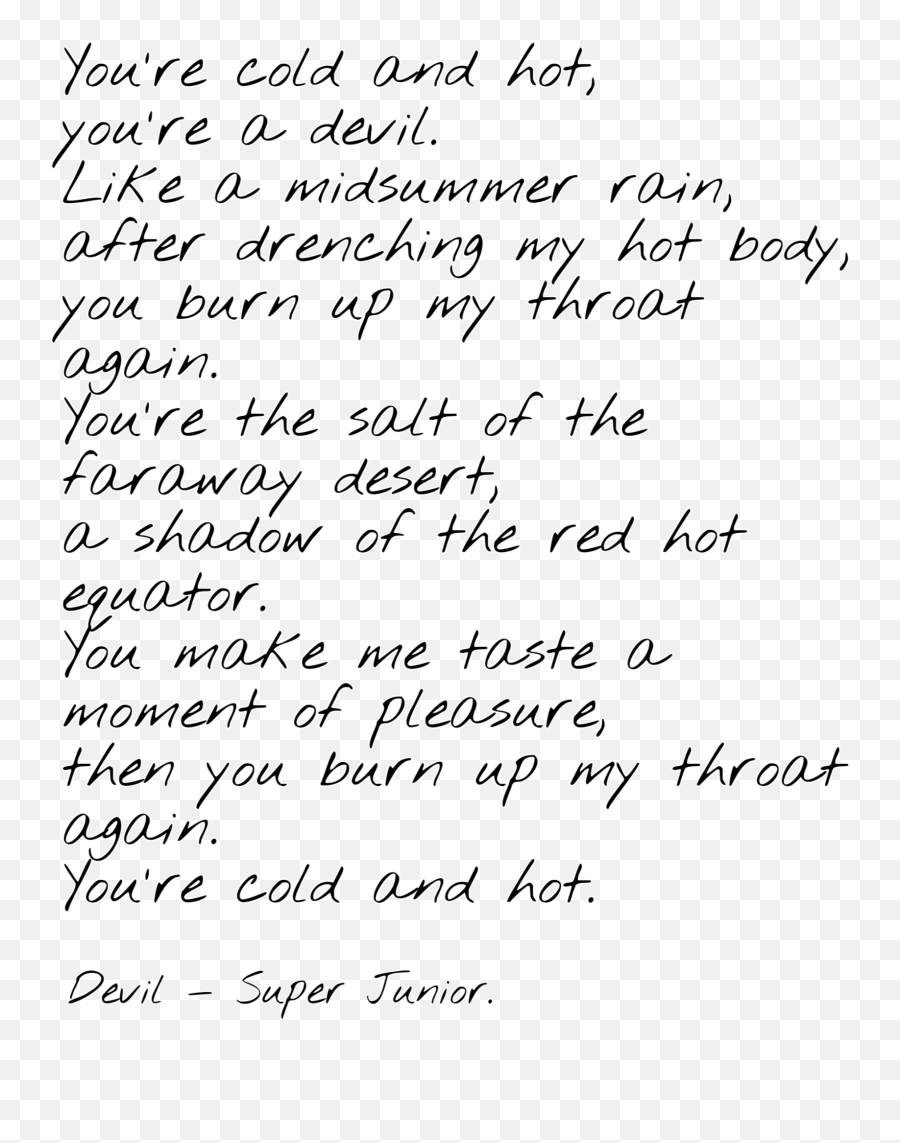 You're cold and hot,
you're a devil.
Like a midsummer rain,
after drenching my hot body,
you burn up my throat
again.
You're the salt of the
faraway desert,
a shadow of the red hot
equator.
You make me taste a
moment of pleasure,
then you burn up my throat
again.
You're cold and hot.
Devil - Super Junior.